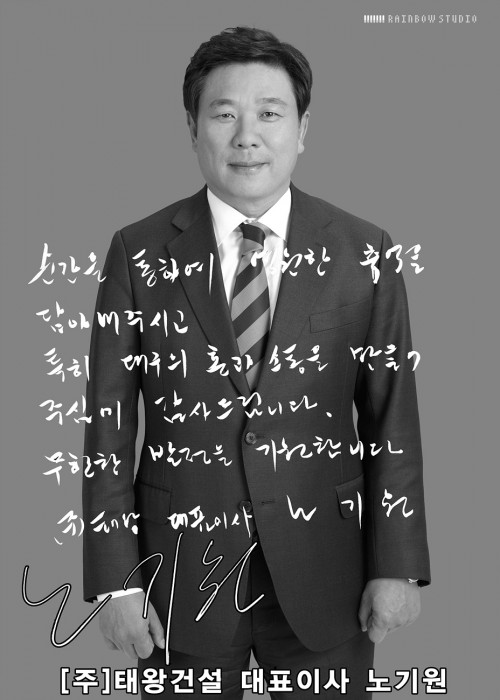 RAINBOW STUDIO
순간을 통하여 영원한 추억을
담아내주시고
특히 대구의 혼과 소통을 만들어
주심에 감사드립니다.
무한한 발전을 기원합니다
(주)태왕 대표이사 노 기 원
노기원
[주]태왕건설 대표이사 노기원